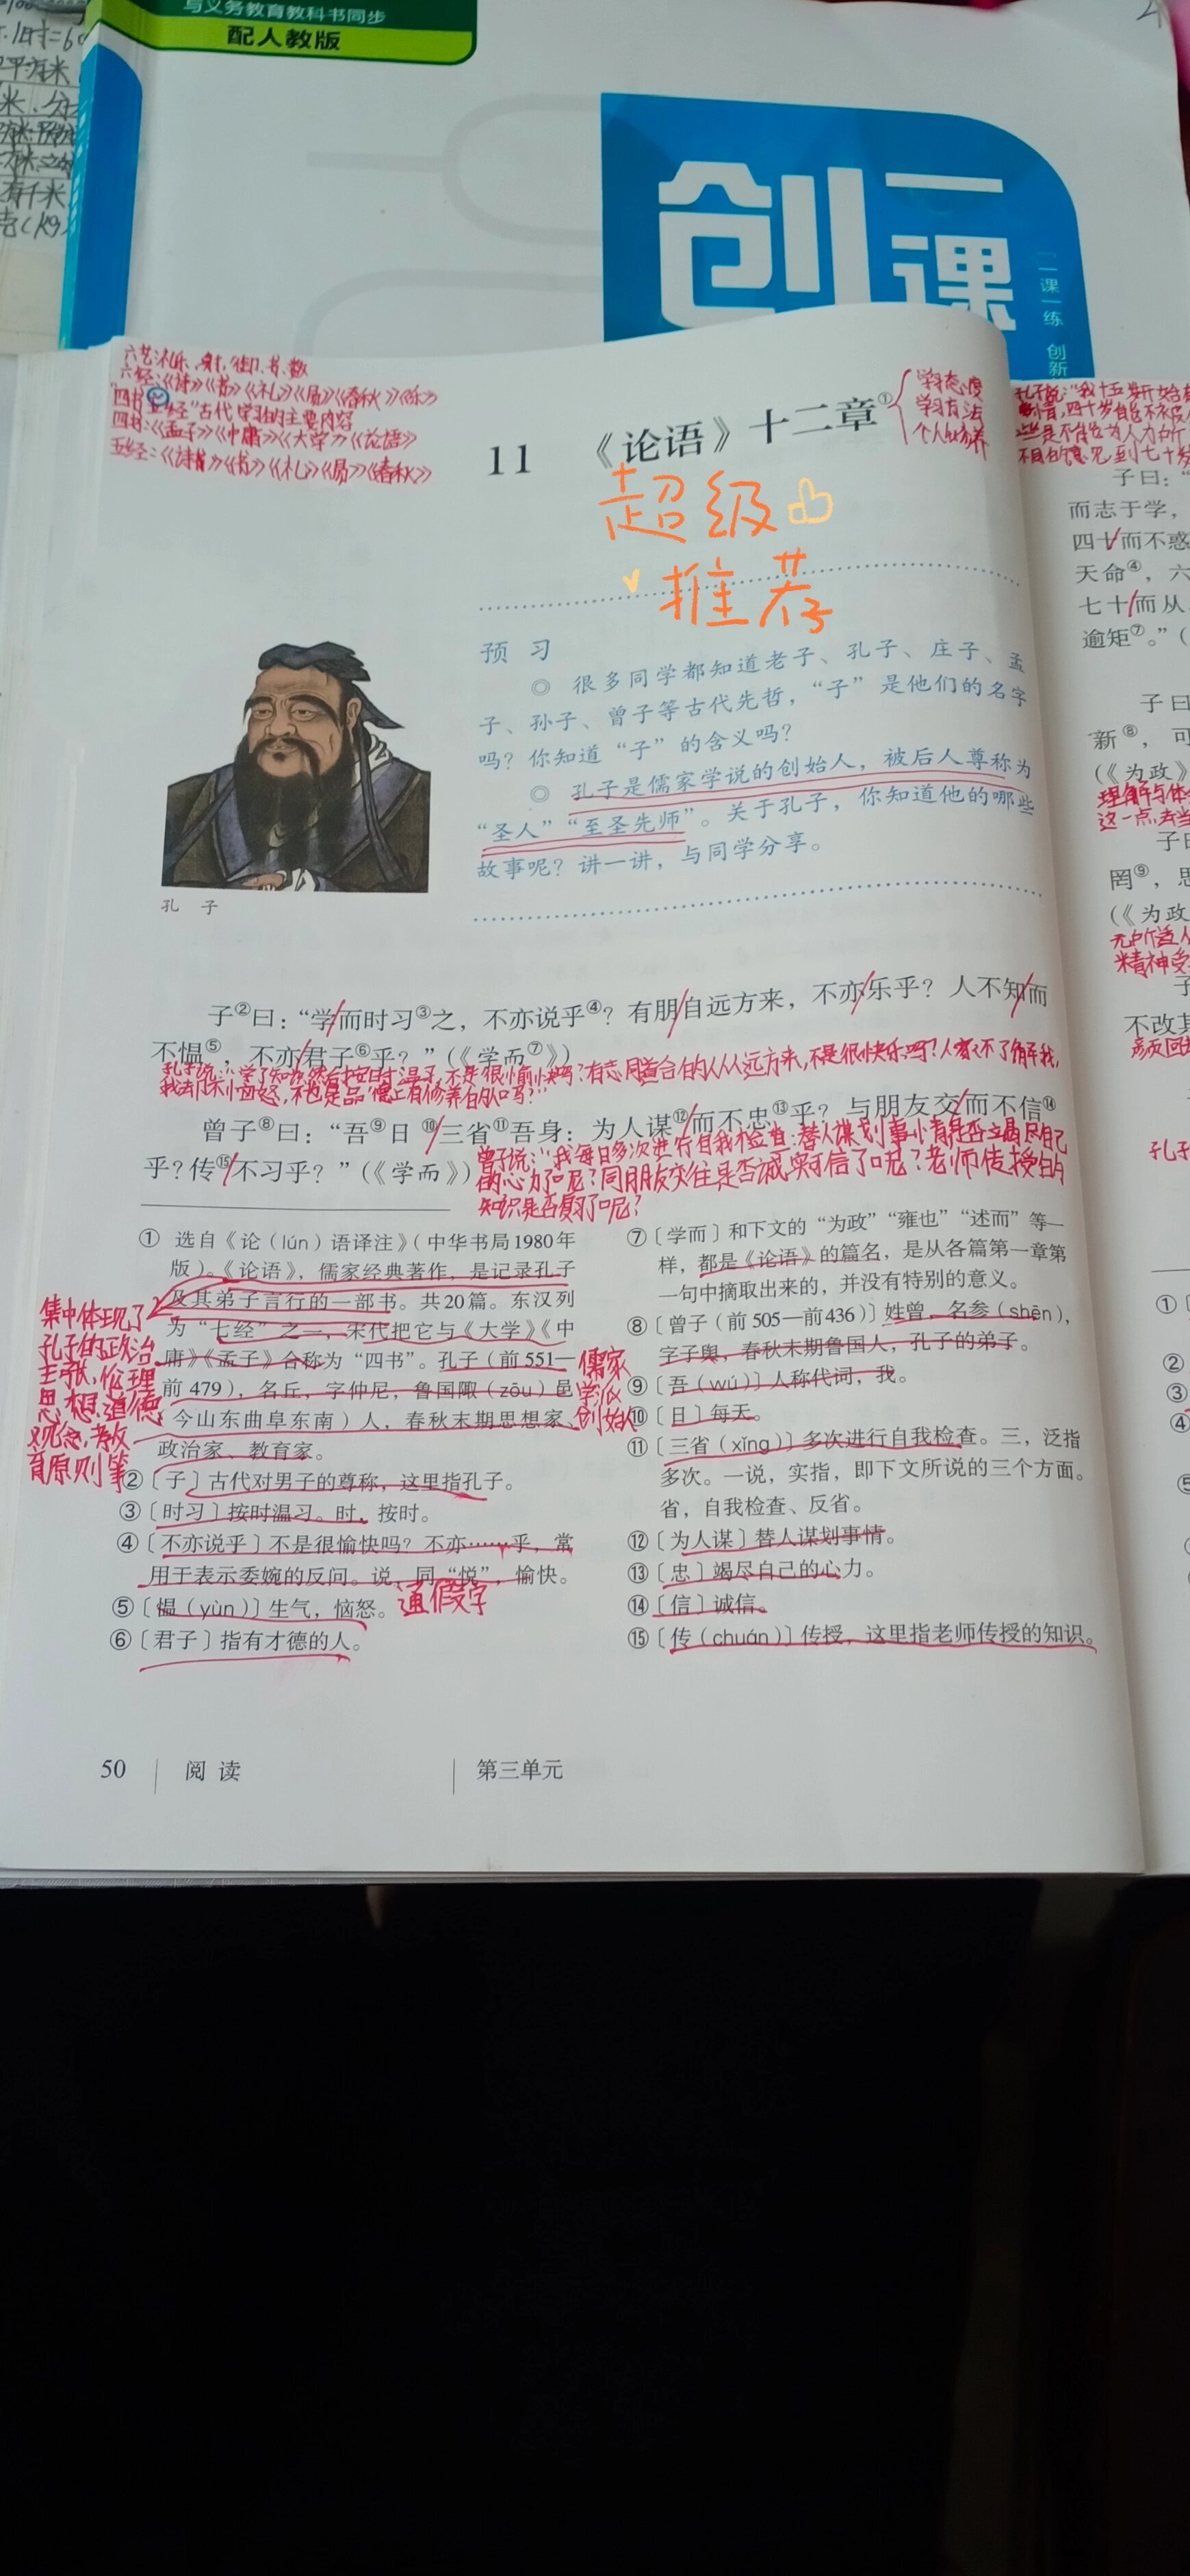 与义务教育教科书同步
配人教版
创一课
一课一练 创新
六艺:礼、乐、射、御、书、数
六经:《诗》《书》《礼》《易》《春秋》《乐》
"四书五经"古代学习的主要内容
四书:《孟子》《中庸》《大学》《论语》
五经:《诗》《书》《礼》《易》《春秋》
11 《论语》十二章①
学习态度
学习方法
个人修养
超级
推荐
预 习
◎ 很多同学都知道老子、孔子、庄子、孟
子、孙子、曾子等古代先哲,“子”是他们的名字
吗?你知道“子”的含义吗?
◎ 孔子是儒家学说的创始人,被后人尊称为
“圣人”“至圣先师”。关于孔子,你知道他的哪些
故事呢?讲一讲,与同学分享。
孔 子
子②曰:“学/而时习③之,不亦说乎④?有朋/自远方来,不亦/乐乎?人不知/而
不愠⑤,不亦/君子⑥乎?”(《学而⑦》)
孔子说:“学了知识然后按时温习,不是很愉快吗?有志同道合的人从远方来,不是很快乐吗?人家不了解我,
我却不恼怒,不也是品德上有修养的人吗?”
曾子⑧曰:“吾⑨日⑩/三省⑪吾身:为人谋⑫/而不忠⑬乎?与朋友交/而不信⑭
乎?传⑮/不习乎?”(《学而》)
曾子说:“我每日多次进行自我检查:替人谋划事情是否竭尽自己
的心力了呢?同朋友交往是否诚实可信了呢?老师传授的
知识是否复习了呢?
① 选自《论(lún)语译注》(中华书局1980年
版)。《论语》,儒家经典著作,是记录孔子
及其弟子言行的一部书。共20篇。东汉列
为“七经”之一,宋代把它与《大学》《中
庸》《孟子》合称为“四书”。孔子(前551—
前479),名丘,字仲尼,鲁国陬(zōu)邑
(今山东曲阜东南)人,春秋末期思想家、
政治家、教育家。
儒家
学派
创始人
集中体现了
孔子的政治
主张,伦理
思想,道德
观念,教
育原则等
②〔子〕古代对男子的尊称,这里指孔子。
③〔时习〕按时温习。时,按时。
④〔不亦说乎〕不是很愉快吗?不亦……乎,常
用于表示委婉的反问。说,同“悦”,愉快。
通假字
⑤〔愠(yùn)〕生气,恼怒。
⑥〔君子〕指有才德的人。
⑦〔学而〕和下文的“为政”“雍也”“述而”等一
样,都是《论语》的篇名,是从各篇第一章第
一句中摘取出来的,并没有特别的意义。
⑧〔曾子(前505—前436)〕姓曾,名参(shēn),
字子舆,春秋末期鲁国人,孔子的弟子。
⑨〔吾(wú)〕人称代词,我。
⑩〔日〕每天。
⑪〔三省(xǐng)〕多次进行自我检查。三,泛指
多次。一说,实指,即下文所说的三个方面。
省,自我检查、反省。
⑫〔为人谋〕替人谋划事情。
⑬〔忠〕竭尽自己的心力。
⑭〔信〕诚信。
⑮〔传(chuán)〕传授,这里指老师传授的知识。
50 阅 读 第三单元
孔子说:“我十五岁开始
子曰:“
而志于学,
四十/而不惑
天命④,六
七十/而从
逾矩⑦。”(
子曰
新⑧,可
(《为政》
理解与体
这一点,去当
子曰
罔⑨,思
(《为政
精神受
子
不改其
孔子
①〔
②
③
④
⑤